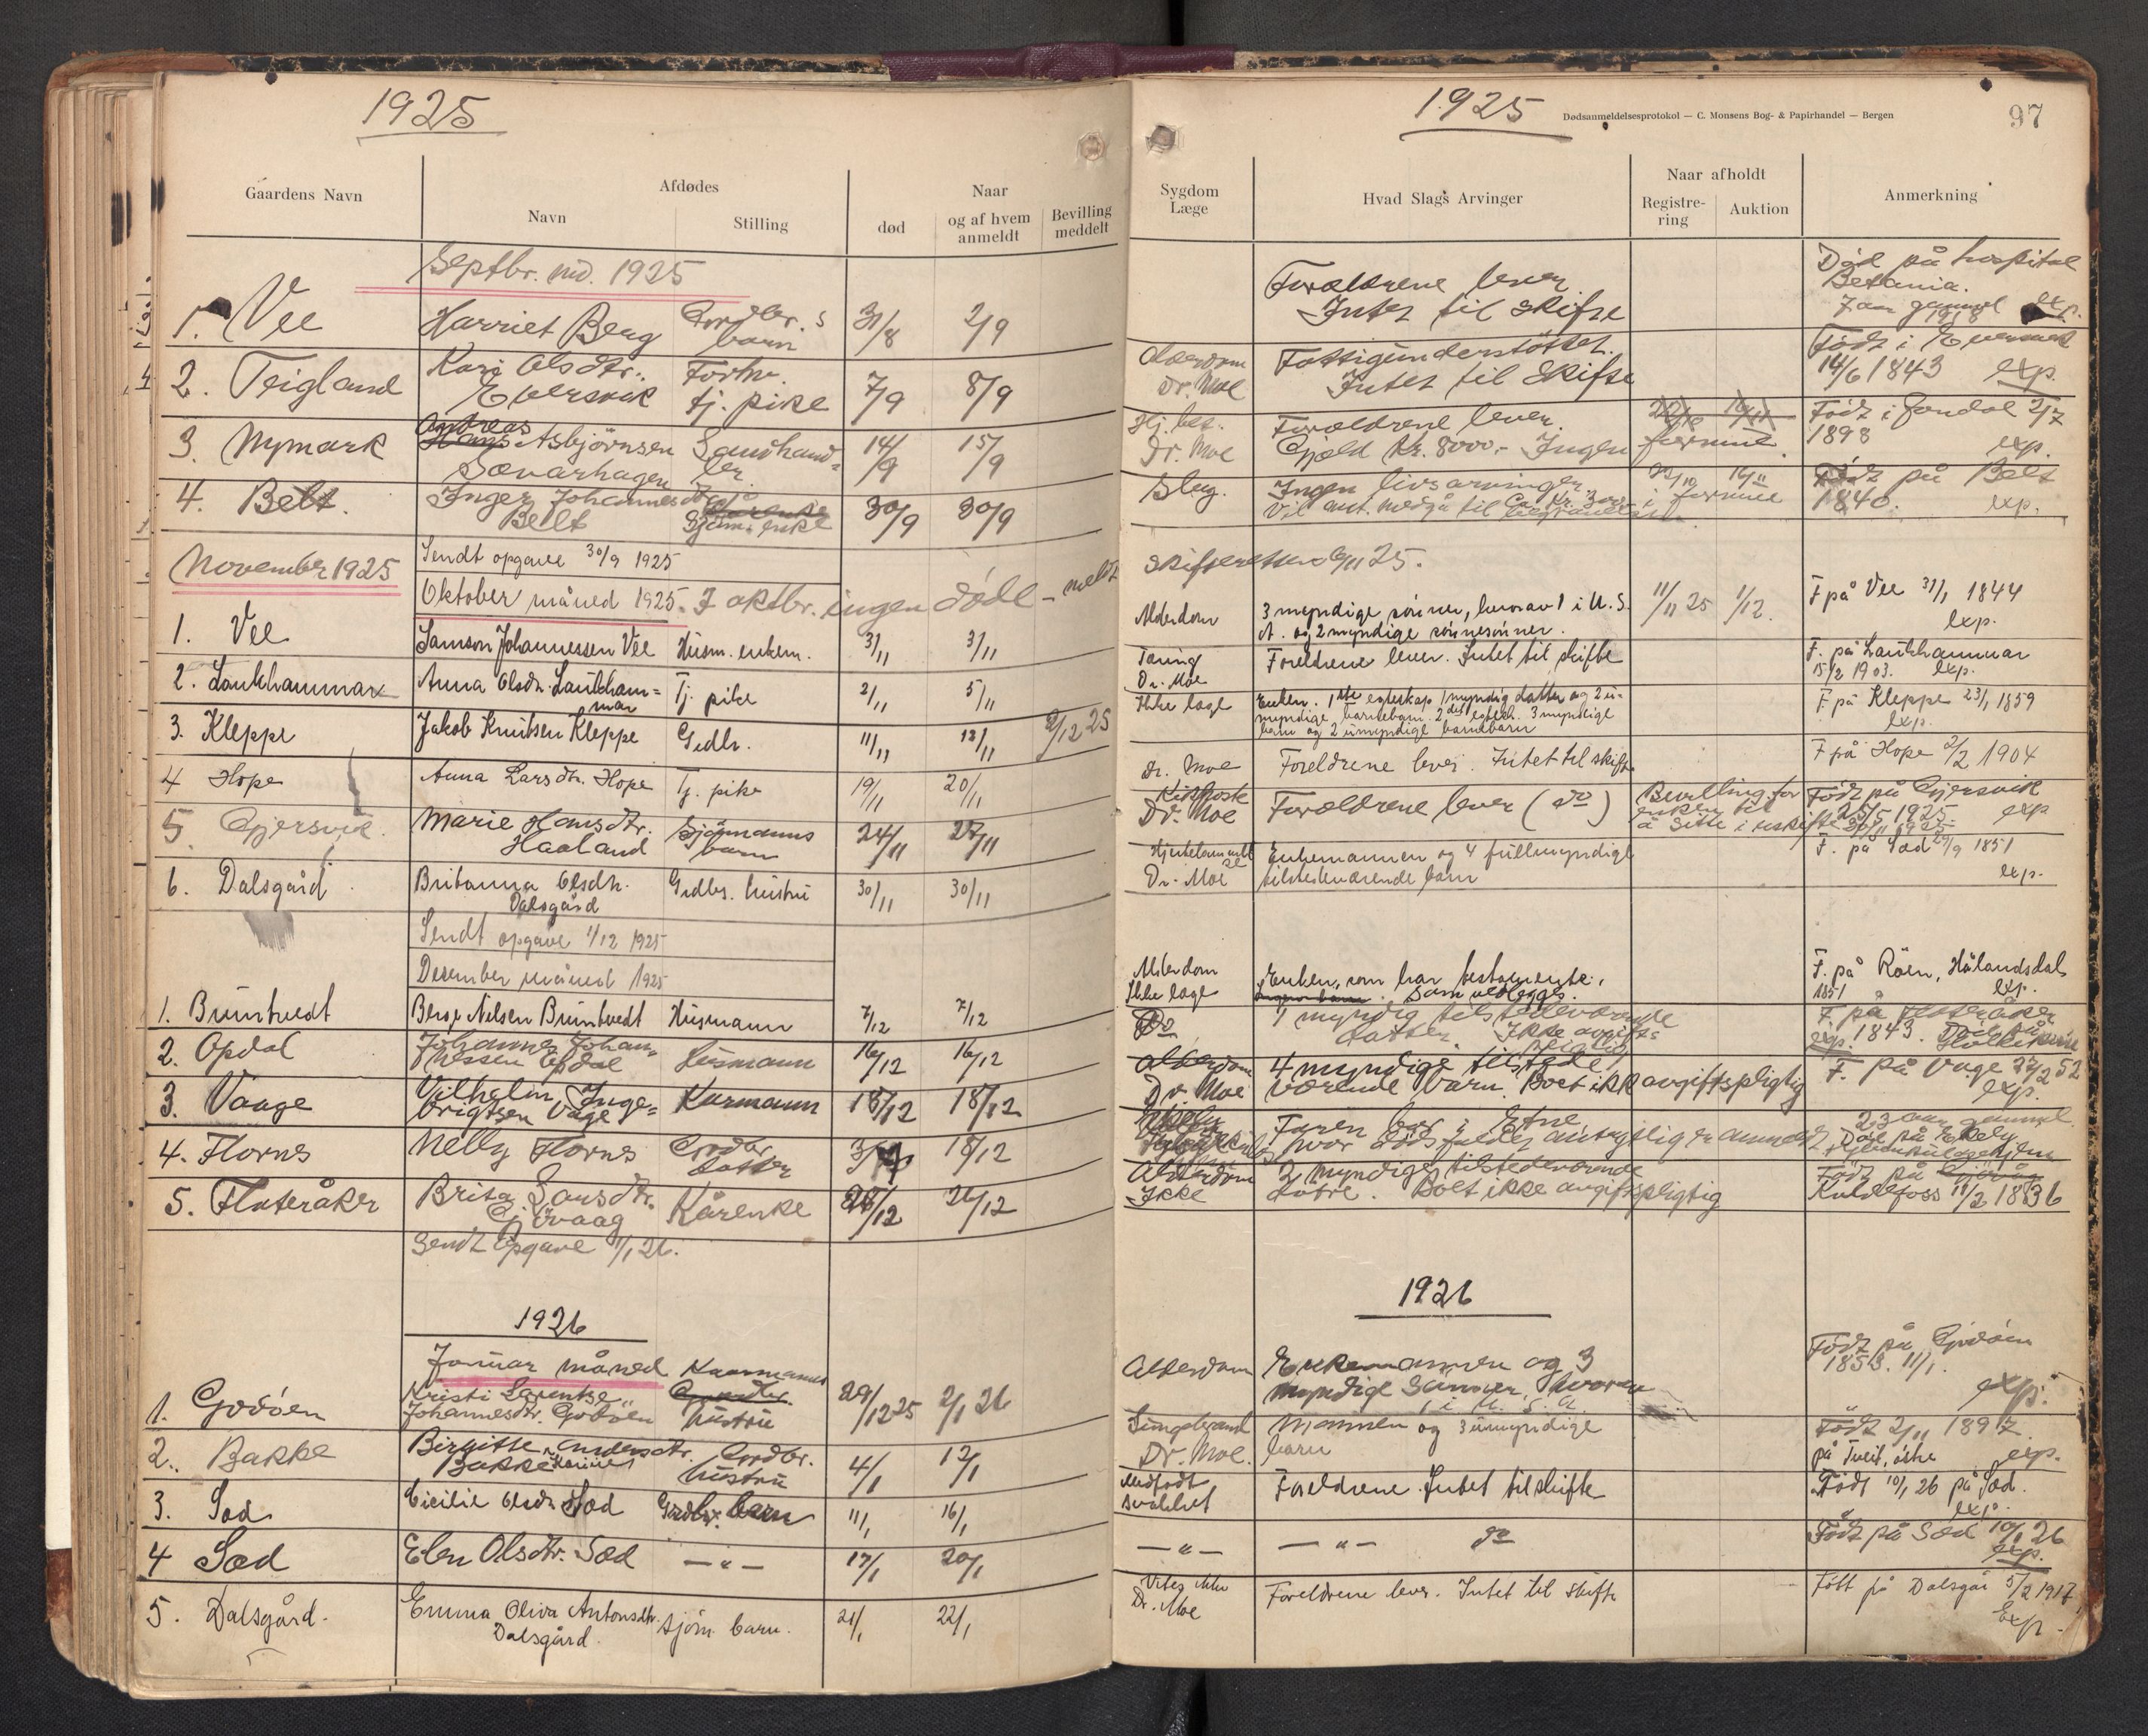 1925
Gaardens Navn
Afdødes
Navn
Stilling
Naar
død
og af hvem
anmeldt
Bevilling
meddelt
Septbr. md. 1925
1. Vee
Harriet Berg
Grdbr. s
barn
31/8
2/9
2. Teigland
Kari Olsdtr.
Eversvik
Forhv.
tj. pike
7/9
8/9
3. Nymark
Andreas
Hans Asbjörnsen
Sævarhagen
Landhand=
ler
14/9
15/9
4. Belt.
Inger Johannesdtr
Belt
Sjöm. enke
30/9
30/9
Sendt opgave 30/9 1925
November 1925
Oktober måned 1925. I oktbr. ingen döde - meldt
1. Vee
Samson Johannessen Vee
Husm. enkem.
3/11
3/11
2. Laukhammar
Anna Olsdr. Laukham=
mar
Tj. pike
2/11
5/11
3. Kleppe
Jakob Knutsen Kleppe
Grdbr.
11/11
12/11
2/12 25
4 Hope
Anna Larsdtr. Hope
Tj. pike
19/11
20/11
5. Gjersvik.
Marie Hansdtr.
Haaland
Sjömanns
barn
24/11
27/11
6. Dalsgård
Britanna Olsdtr.
Dalsgård
Grdbr. hustru
30/11
30/11
Sendt opgave 1/12 1925
Desember måned 1925
1. Bruntvedt
Berge Nilsen Bruntvedt
Husmann
7/12
7/12
2. Opdal
Johannes Johan=
nessen Opdal
Husmann
16/12
16/12
3. Vaage
Vilhelm Inge=
brigtsen Våge
Kårmann
18/12
18/12
4. Flornes
Nelly Flornes
Grdbr
datter
18/12
5. Flateråker
Brita Larsdtr.
Gjövaag
Kårenke
26/12
26/12
Sendt Opgave 1/1 26.
1926
Januar måned
1. Godöen
Kristi Lawentse
Johannesdtr. Godöen
Kaarmanns
hustru
29/12 25
2/1 26
2. Bakke
Birgitte Andersdtr.
Bakke
Grdbr.
hustru
4/1
12/1
3. Sæd
Cicilie Olsdr Sæd
Grdbr. barn
11/1
16/1
4 Sæd
Elen Olsdtr. Sæd
— " —
17/1
20/1
5. Dalsgård.
Emma Oliva Antonsdtr.
Dalsgård.
Sjöm. barn.
21/1
22/1
1925
Dødsanmeldelsesprotokol — C. Monsens Bog- & Papirhandel — Bergen
97
Sygdom
Læge
Hvad Slags Arvinger
Naar afholdt
Registre-
ring
Auktion
Anmerkning
Forældrene lever
Intet til skifte
Död på hospital
Betania.
7 aar gammel
exp.
Alderdom
Dr. Moe
Fattigunderstöttet.
Intet til skifte
Född i Eversvik
14/6 1843 exp.
Hj. bet.
Dr. Moe
Forældrene lever.
Gjæld Kr. 8000,- Ingen formue
Född i Jondal 2/7
1898
exp.
Slag.
Ingen livsarvinger.
i formue
Född på Belt
1840. exp.
Skifteretten 6/11 25.
Alderdom
3 myndige sönner, hvorav 1 i U. S.
A. og 2 myndige sönnesönner.
11/11 25
1/12.
F på Vee 31/1 1844
exp.
Tæring
Dr. Moe
Foreldrene lever. Intet til skifte
F. på Laukhammar
15/2 1903. exp.
Ikke læge
Enken. 1ste egteskap 1 myndig datter og 2 u-
myndige barnebarn. 2det egtesk. 3 myndige
barn og 2 umyndige barnebarn
F på Kleppe 23/1 1859
exp.
Dr. Moe
Foreldrene lever. Intet til skifte
F på Hope 2/2 1904
Kikhoste
Dr. Moe
Forældrene lever (do)
Bevilling for
enken til
å sitte i uskifte
Född på Gjersvik
25/5 1925. exp
Dr. Moe
Enkemannen og 4 fullmyndige
tilstedeværende barn
F. på Sæd 29/9 1851
exp.
Alderdom
Ikke læge
Enken, som har testamente,
som vedlegges.
F. på Röen, Hålandsdal
1851 exp.
Do
1 myndig tilstedeværende
datter. Ikke avgifts-
pligtig
F på Flateråker
exp. 1843.
Alderdom
Dr. Moe
4 myndige tilstede
værende barn. Boet ikk avgiftspligtig
F. på Våge 27/2 52
exp.
Faren bor i Etne
hvor dödsfaldet antagelig er anmeldt
23 aar gammel.
Alderdom
Ikke
2 myndige tilstedeværende
døtre. Boet ikke avgiftspligtig
Född på
Kuldefoss 11/2 1836
1926
Alderdom
Enkemannen og 3
myndige sönner, hvorav
1 i U. S. A.
Född på Godöen
1853. 11/1.
exp.
Lungebetænd
Dr. Moe.
Mannen og 3 umyndige
barn
Född 2/11 1897
på Tveit, östre exp.
Medfødt
svakhet
Foreldrene. Intet til skifte
Född 10/1 26 på Sæd.
exp.
— " —
— " — do
Född på Sæd 10/1 26
exp.
Vites ikke
Dr. Moe
Foreldrene lever. Intet til skifte
Född på Dalsgår 5/2 1917
Exp.